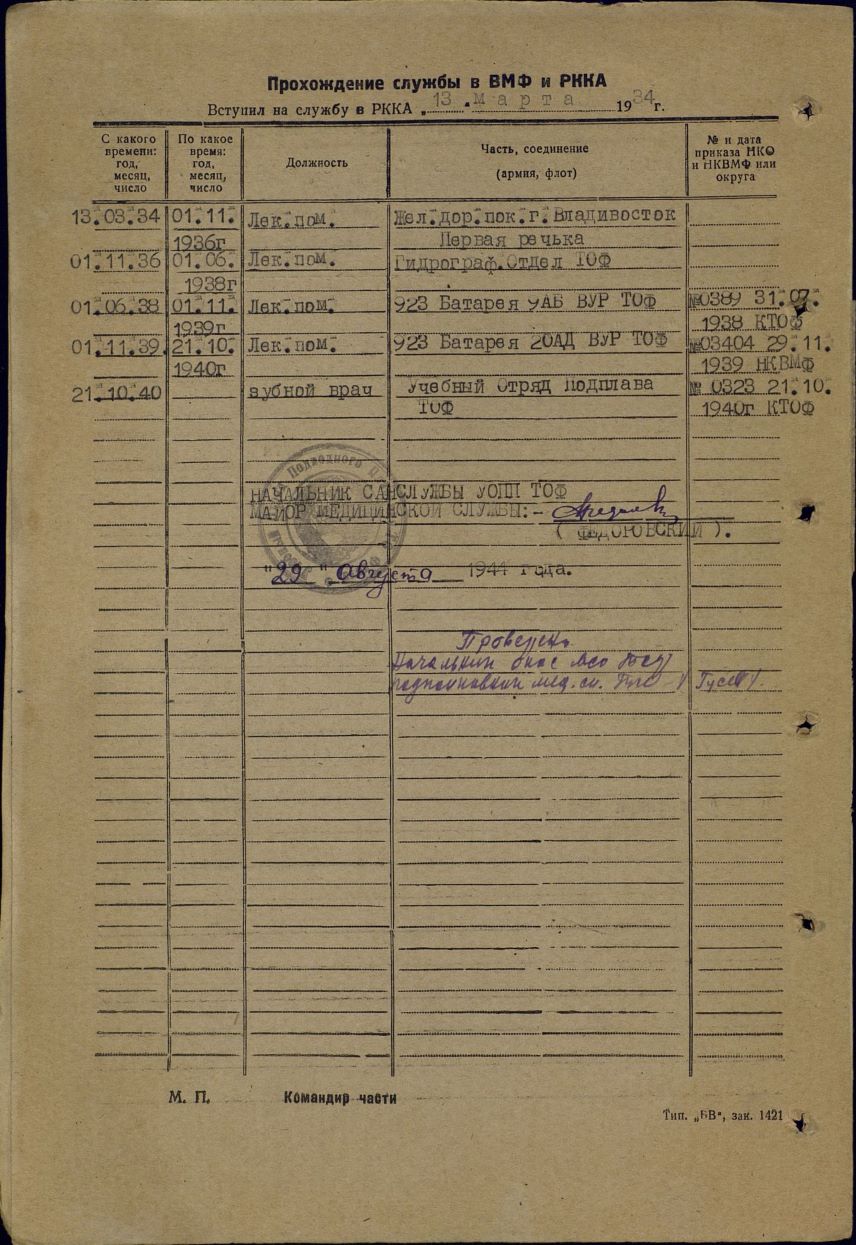 Прохождение службы в ВМФ и РККА
Вступил на службу в РККА „13“ марта 1934г.
С какого времени: год, месяц, число
По какое время: год, месяц, число
Должность
Часть, соединение
(армия, флот)
№ и дата приказа НКО и НКВМФ или округа
13.03.34 01.11. Лек.пом. Жел.дор.пок.г.Владивосток
1936г Первая речька
01.11.36 01.06. Лек.пом. Гидрограф.Отдел ТОФ
1938г
01.06.38 01.11. Лек.пом. 923 Батарея 9АБ ВУР ТОФ №0389 31.07.
1939г 1938 КТОФ
01.11.39 21.10. Лек.пом. 923 Батарея 20АД ВУР ТОФ №03404 29.11.
1940г 1939 НКВМФ
21.10.40 зубной врач Учебный Отряд Подплава № 0323 21.10.
ТОФ 1940г КТОФ
Подводного
НАЧАЛЬНИК САНСЛУЖБЫ УОПП ТОФ
МАЙОР МЕДИЦИНСКОЙ СЛУЖБЫ:-
( ФЕДОРОВСКИЙ ).
"29" Августа 1944 года.
Проверено
Начальник
мед. сл.
М. П. Командир части
Тип. „БВ“, зак. 1421